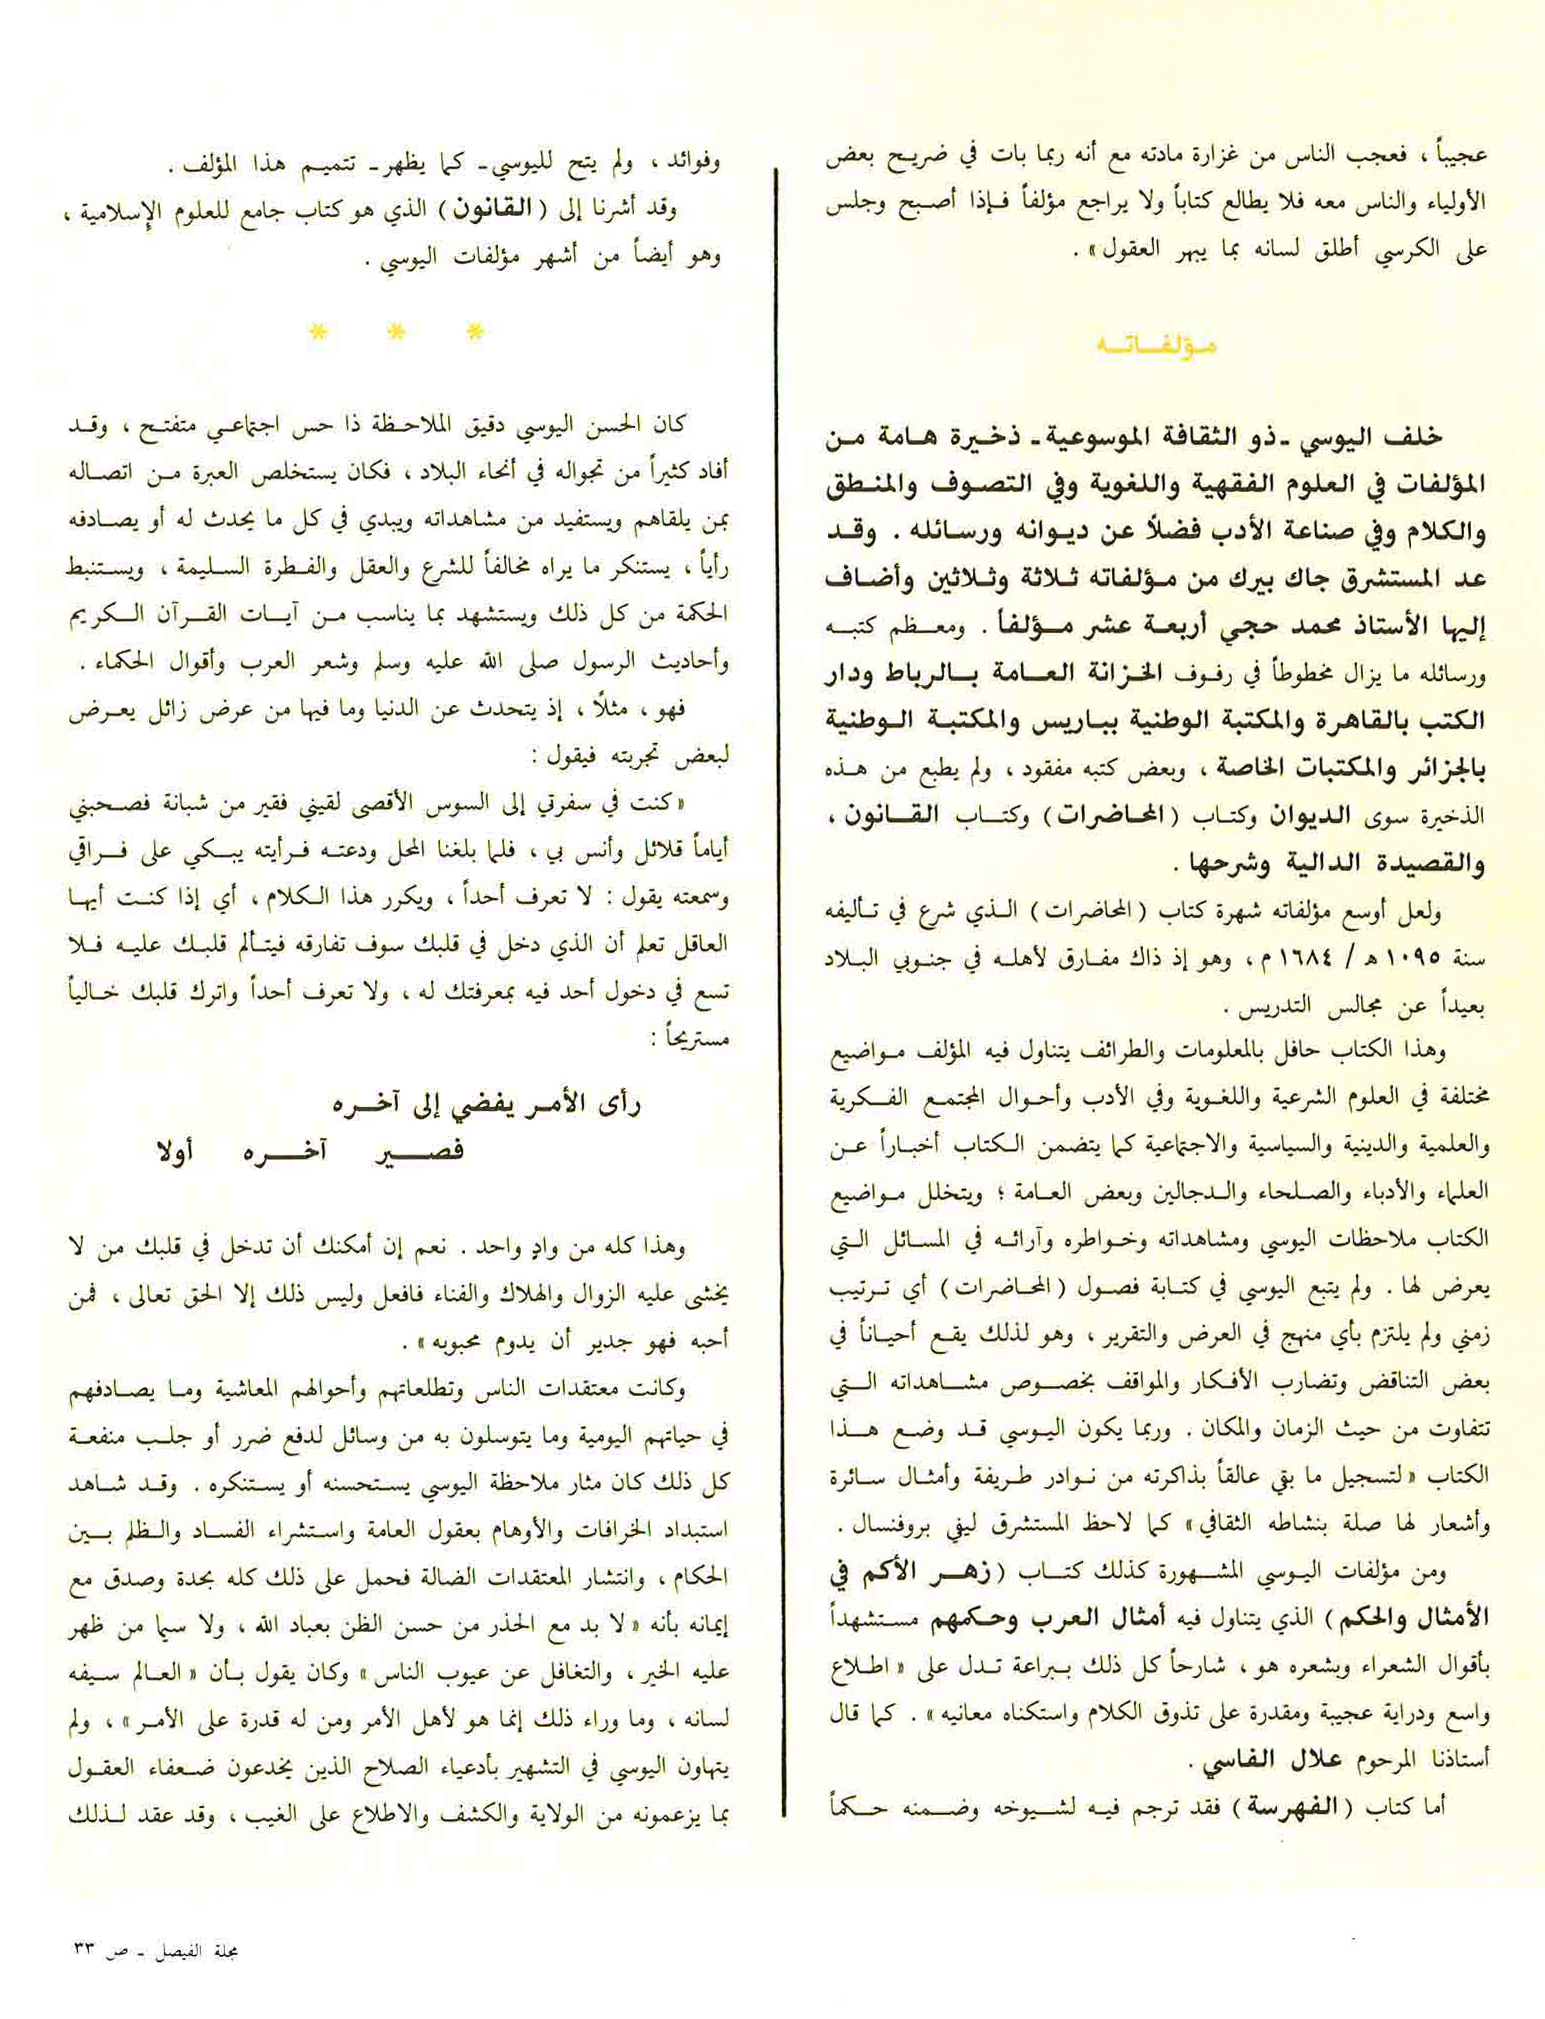 عجيباً ، فعجب الناس من غزارة مادته مع أنه ربما بات في ضريح بعض
الأولياء والناس معه فلا يطالع كتاباً ولا يراجع مؤلفاً فإذا أصبح وجلس
على الكرسي أطلق لسانه بما يبهر العقول » .
مؤلفاته
خلف اليوسي ـ ذو الثقافة الموسوعية ـ ذخيرة هامة من
المؤلفات في العلوم الفقهية واللغوية وفي التصوف والمنطق
والكلام وفي صناعة الأدب فضلاً عن ديوانه ورسائله . وقد
عد المستشرق جاك بيرك من مؤلفاته ثلاثة وثلاثين وأضاف
إليها الأستاذ محمد حجي أربعة عشر مؤلفاً . ومعظم كتبه
ورسائله ما يزال مخطوطاً في رفوف الخزانة العامة بالرباط ودار
الكتب بالقاهرة والمكتبة الوطنية بباريس والمكتبة الوطنية
بالجزائر والمكتبات الخاصة ، وبعض كتبه مفقود ، ولم يطبع من هذه
الذخيرة سوى الديوان وكتاب ( المحاضرات ) وكتاب القانون ،
والقصيدة الدالية وشرحها .
ولعل أوسع مؤلفاته شهرة كتاب ( المحاضرات ) الذي شرع في تأليفه
سنة ١٠٩٥ هـ / ١٦٨٤ م ، وهو إذ ذاك مفارق لأهله في جنوبي البلاد
بعيداً عن مجالس التدريس .
وهذا الكتاب حافل بالمعلومات والطرائف يتناول فيه المؤلف مواضيع
مختلفة في العلوم الشرعية واللغوية وفي الأدب وأحوال المجتمع الفكرية
والعلمية والدينية والسياسية والاجتماعية كما يتضمن الكتاب أخباراً عن
العلماء والأدباء والصلحاء والدجالين وبعض العامة ؛ ويتخلل مواضيع
الكتاب ملاحظات اليوسي ومشاهداته وخواطره وآرائه في المسائل التي
يعرض لها . ولم يتبع اليوسي في كتابة فصول ( المحاضرات ) أي ترتيب
زمني ولم يلتزم بأي منهج في العرض والتقرير ، وهو لذلك يقع أحياناً في
بعض التناقض وتضارب الأفكار والمواقف بخصوص مشاهداته التي
تتفاوت من حيث الزمان والمكان . وربما يكون اليوسي قد وضع هذا
الكتاب « لتسجيل ما بقي عالقاً بذاكرته من نوادر طريفة وأمثال سائرة
وأشعار لها صلة بنشاطه الثقافي » كما لاحظ المستشرق ليفي بروفنسال .
ومن مؤلفات اليوسي المشهورة كذلك كتاب ( زهر الأكم في
الأمثال والحكم ) الذي يتناول فيه أمثال العرب وحكمهم مستشهداً
بأقوال الشعراء وبشعره هو ، شارحاً كل ذلك ببراعة تدل على « اطلاع
واسع ودراية عجيبة ومقدرة على تذوق الكلام واستكناه معانيه » . كما قال
أستاذنا المرحوم علال الفاسي .
أما كتاب ( الفهرسة ) فقد ترجم فيه لشيوخه وضمنه حكماً
وفوائد ، ولم يتح لليوسي ـ كما يظهر ـ تتميم هذا المؤلف .
وقد أشرنا إلى ( القانون ) الذي هو كتاب جامع للعلوم الإسلامية ،
وهو أيضاً من أشهر مؤلفات اليوسي .
* * *
كان الحسن اليوسي دقيق الملاحظة ذا حس اجتماعي متفتح ، وقد
أفاد كثيراً من تجواله في أنحاء البلاد ، فكان يستخلص العبرة من اتصاله
بمن يلقاهم ويستفيد من مشاهداته ويبدي في كل ما يحدث له أو يصادفه
رأياً ، يستنكر ما يراه مخالفاً للشرع والعقل والفطرة السليمة ، ويستنبط
الحكمة من كل ذلك ويستشهد بما يناسب من آيات القرآن الكريم
وأحاديث الرسول صلى الله عليه وسلم وشعر العرب وأقوال الحكماء .
فهو ، مثلاً ، إذ يتحدث عن الدنيا وما فيها من عرض زائل يعرض
لبعض تجربته فيقول :
« كنت في سفرتي إلى السوس الأقصى لقيني فقير من شبانة فصحبني
أياماً قلائل وأنس بي ، فلما بلغنا المحل ودعته فرأيته يبكي على فراقي
وسمعته يقول : لا تعرف أحداً ، ويكرر هذا الكلام ، أي إذا كنت أيها
العاقل تعلم أن الذي دخل في قلبك سوف تفارقه فيتألم قلبك عليه فلا
تسع في دخول أحد فيه بمعرفتك له ، ولا تعرف أحداً واترك قلبك خالياً
مستريحاً :
رأى الأمر يفضي إلى آخره
فصير آخره أولا
وهذا كله من وادٍ واحد . نعم إن أمكنك أن تدخل في قلبك من لا
يخشى عليه الزوال والهلاك والفناء فافعل وليس ذلك إلا الحق تعالى ، فمن
أحبه فهو جدير أن يدوم محبوبه » .
وكانت معتقدات الناس وتطلعاتهم وأحوالهم المعاشية وما يصادفهم
في حياتهم اليومية وما يتوسلون به من وسائل لدفع ضرر أو جلب منفعة
كل ذلك كان مثار ملاحظة اليوسي يستحسنه أو يستنكره . وقد شاهد
استبداد الخرافات والأوهام بعقول العامة واستشراء الفساد والظلم بين
الحكام ، وانتشار المعتقدات الضالة فحمل على ذلك كله بحدة وصدق مع
إيمانه بأنه « لا بد مع الحذر من حسن الظن بعباد الله ، ولا سيما من ظهر
عليه الخير ، والتغافل عن عيوب الناس » وكان يقول بأن « العالم سيفه
لسانه ، وما وراء ذلك إنما هو لأهل الأمر ومن له قدرة على الأمر » ، ولم
يتهاون اليوسي في التشهير بأدعياء الصلاح الذين يخدعون ضعفاء العقول
بما يزعمونه من الولاية والكشف والاطلاع على الغيب ، وقد عقد لذلك
مجلة الفيصل ـ ص ٣٣